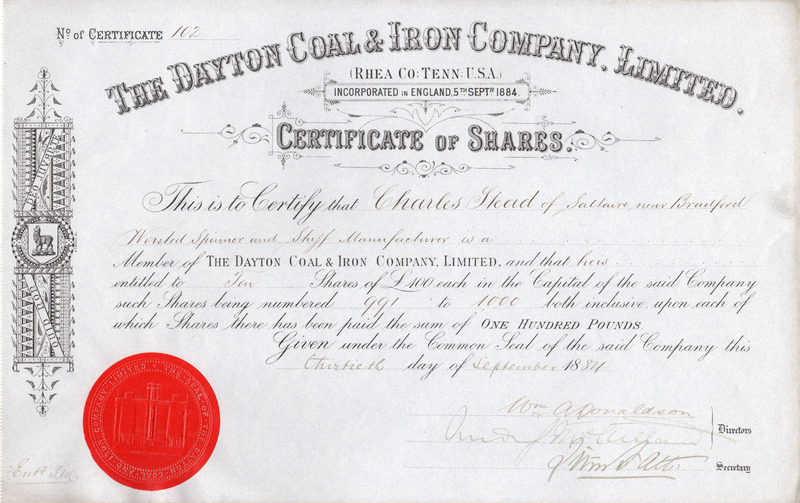 No. of Certificate 102
THE DAYTON COAL & IRON COMPANY, LIMITED.
(RHEA CO: TENN: U.S.A.)
INCORPORATED IN ENGLAND, 5TH SEPTR 1884.
CERTIFICATE OF SHARES.
This is to Certify that Charles Stead of Saltaire, near Bradford
Worsted Spinner and Stuff Manufacturer is a
Member of THE DAYTON COAL & IRON COMPANY, LIMITED, and that he is
entitled to Ten Shares of £100 each in the Capital of the said Company
such Shares being numbered 991 to 1000 both inclusive, upon each of
which Shares there has been paid the sum of ONE HUNDRED POUNDS.
Given under the Common Seal of the said Company this
thirtieth day of September 1884
Wm A Donaldson
Directors
Secretary
DEO JUVANTE
THE SEAL OF THE DAYTON COAL AND IRON COMPANY LIMITED